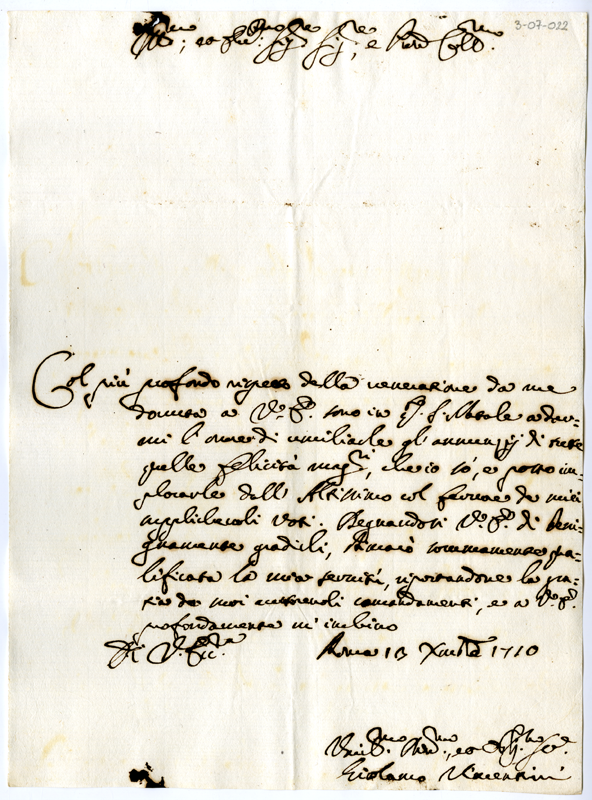 3-07-022
Ill.mo, et Ecc.mo Sig.re Sig.re, e P.rone Coll.mo
Col più profondo rispetto della veneratione da me
dovuta a V.ra E. sono in q. S. Natale a dar-
mi l'onore di umiliarle gl'annunzij di tutte
quelle felicità magri, che io sò, e posso im-
plorarle dall' Altissimo col fervore de miei
supplichevoli voti. Degnandosi V.ra E. di beni-
gnamente gradirli, stimarò sommamente qua-
lificata la mia servitù, riportandone la gra-
tia de suoi autorevoli comandamenti, e a V.ra E.
profondamente m'inchino
Di V. Ecc.za Roma 13 Xmbre 1710
Umil.mo Dev.mo, et Obl.mo Ser.e
Girolamo Vincentini